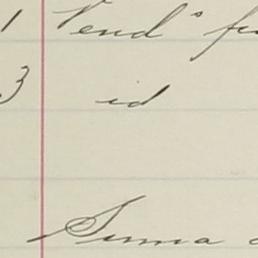 1 Vend°
3 id
Suma